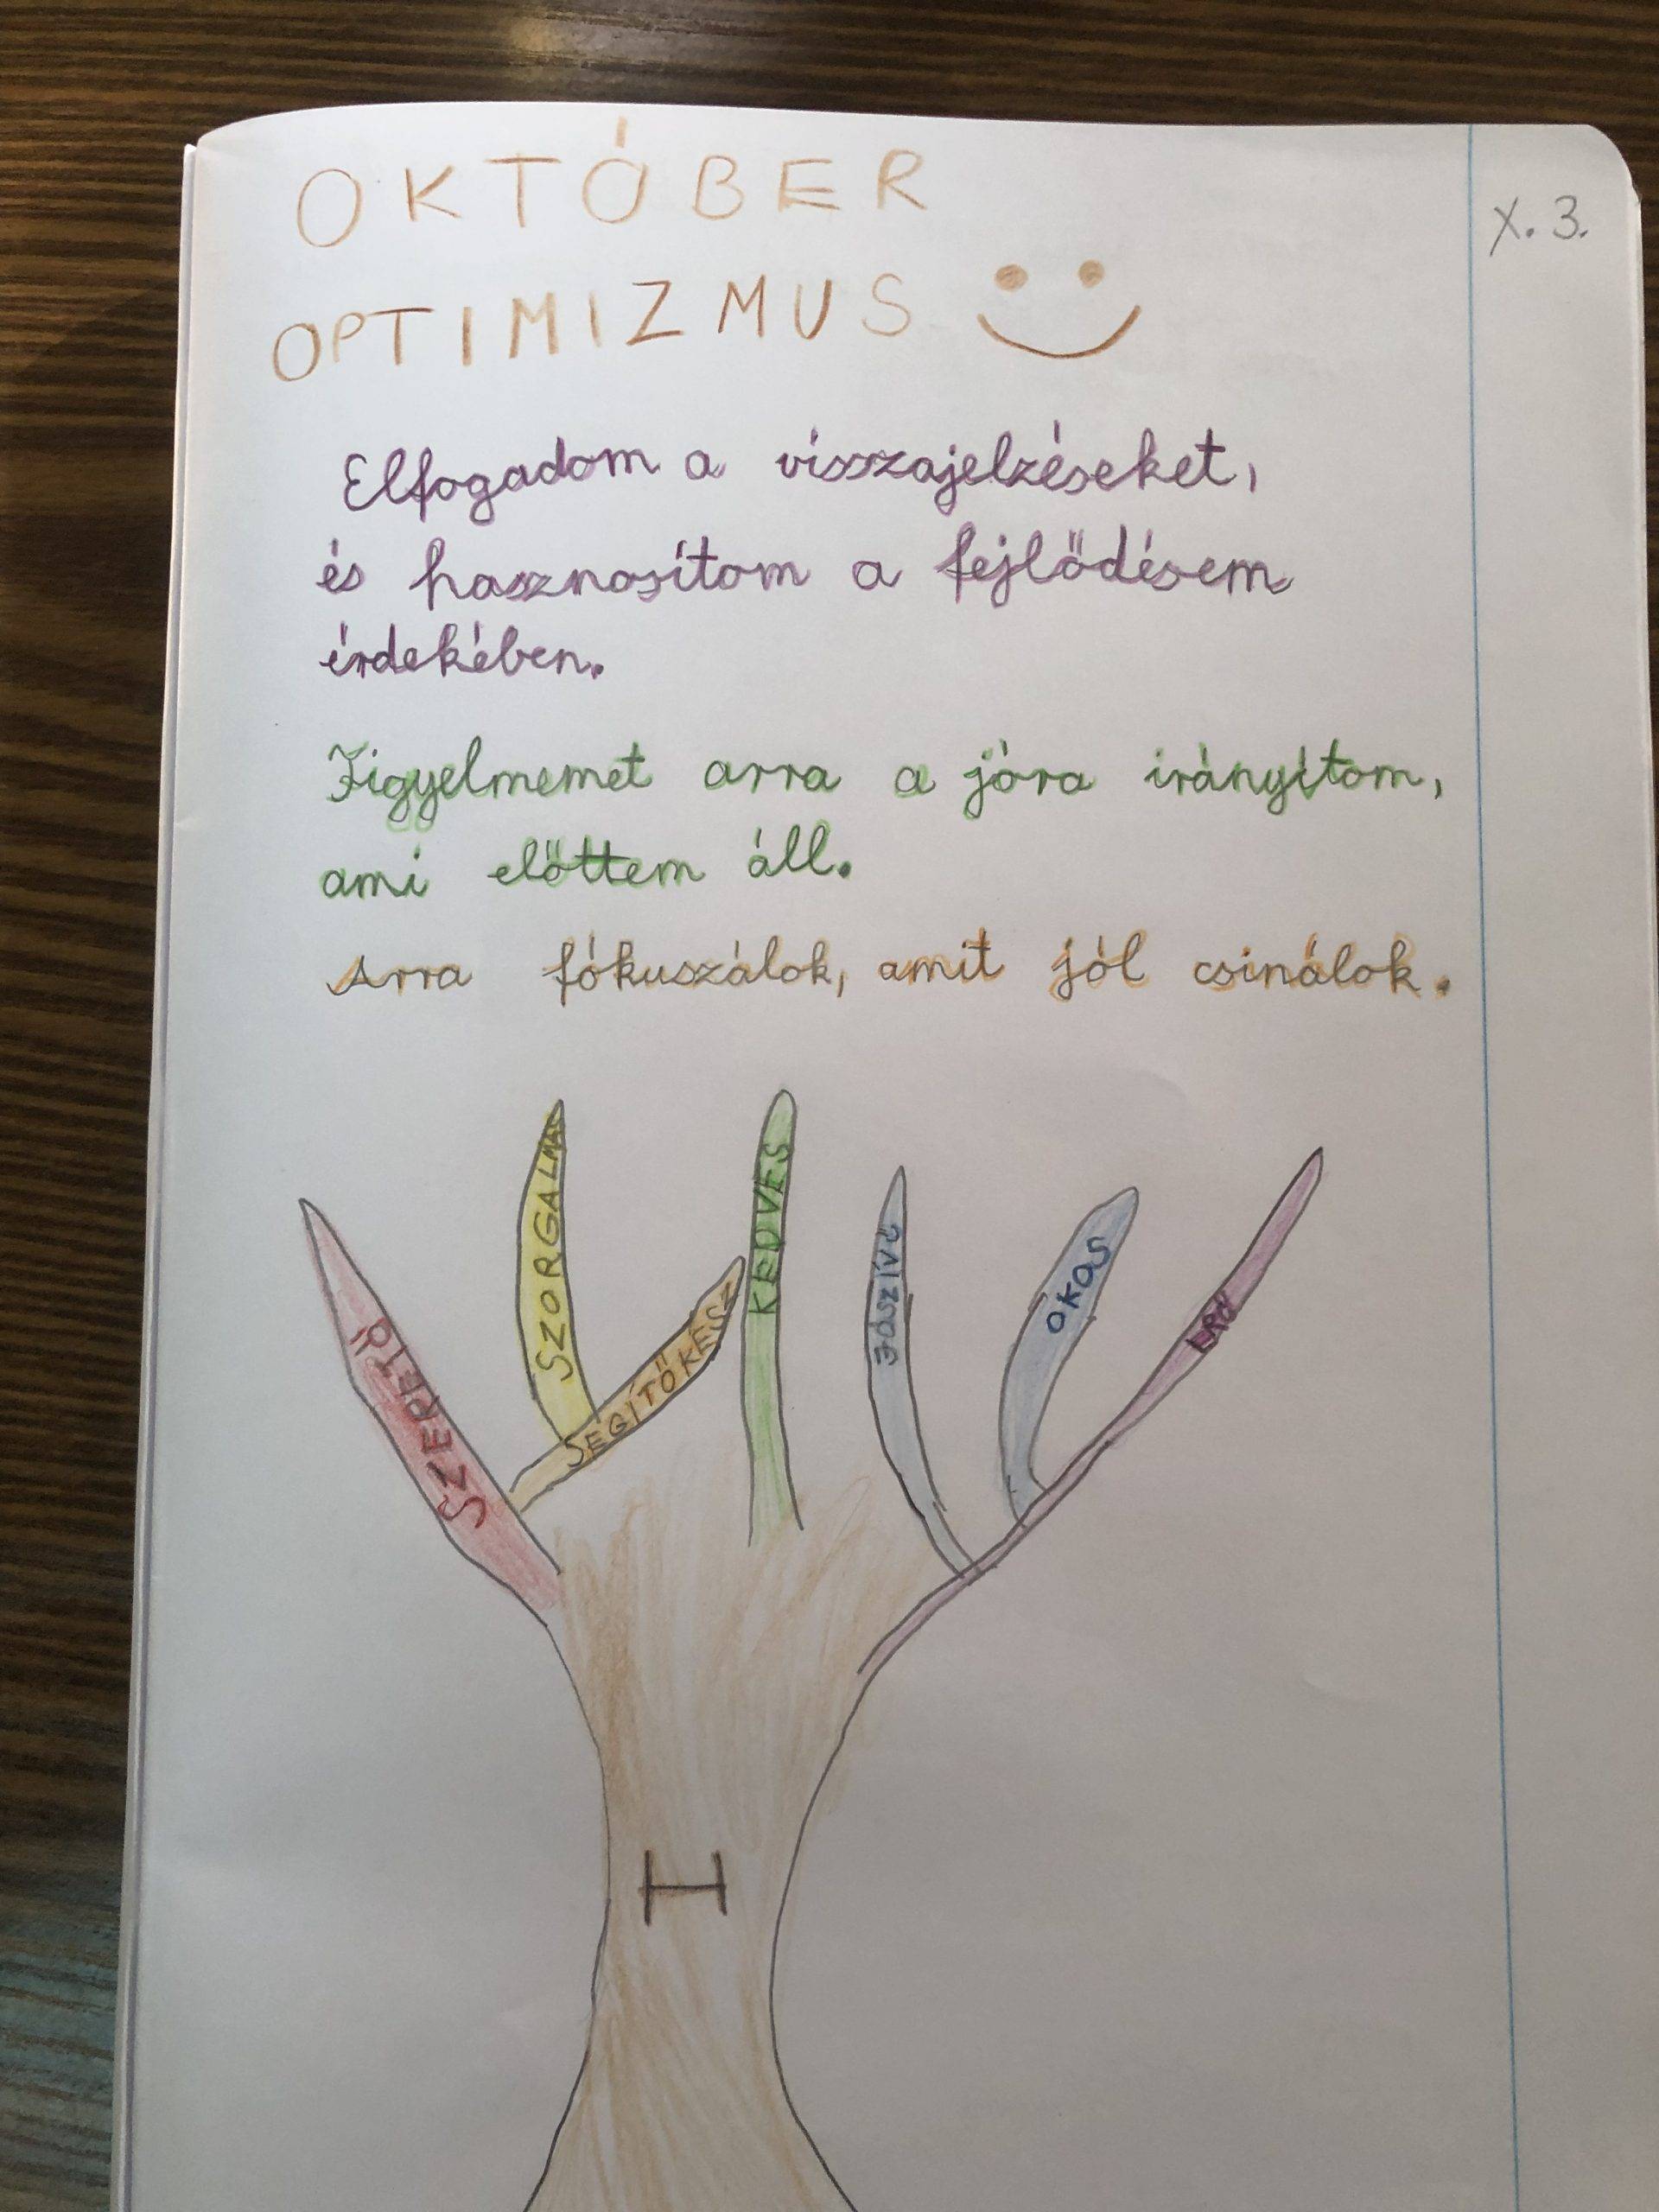 OKTÓBER
X. 3.
OPTIMIZMUS
Elfogadom a visszajelzéseket,
és hasznosítom a fejlődésem
érdekében.
Figyelmemet arra a jóra irányítom,
ami előttem áll.
Arra fókuszálok, amit jól csinálok.
SZERETŐ
SZORGALMAS
SEGÍTŐKÉSZ
KEDVES
JÓSZÍVŰ
OKOS
H